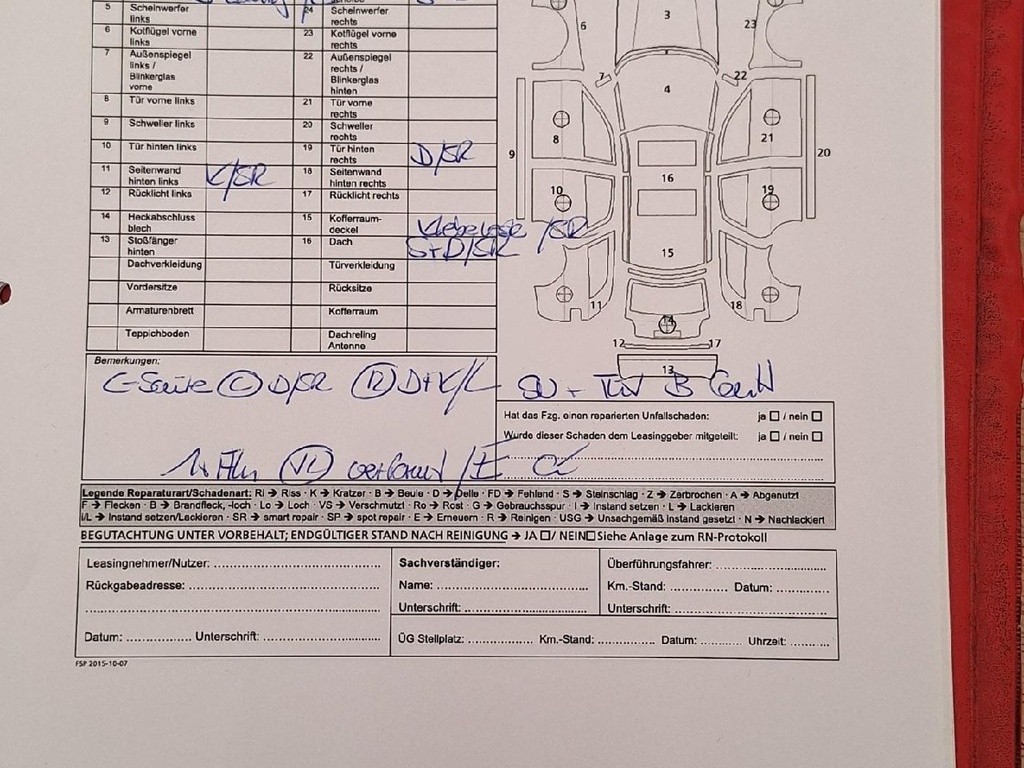 5 Scheinwerfer links 24 Scheinwerfer rechts
6 Kotflügel vorne links 23 Kotflügel vorne rechts
7 Außenspiegel links / Blinkerglas vorne 22 Außenspiegel rechts / Blinkerglas hinten
8 Tür vorne links 21 Tür vorne rechts
9 Schweller links 20 Schweller rechts
10 Tür hinten links 19 Tür hinten rechts D/SR
11 Seitenwand hinten links K/SR 18 Seitenwand hinten rechts
12 Rücklicht links 17 Rücklicht rechts
14 Heckabschluss blech 15 Kofferraum- deckel /SR
13 Stoßfänger hinten 16 Dach S+D/SR
Dachverkleidung Türverkleidung
Vordersitze Rücksitze
Armaturenbrett Kofferraum
Teppichboden Dachreling Antenne
3
6 23
7 22
4
8 21
9 20
16
10 19
15
11 18
14
12 17
13
Bemerkungen:
C-Säule D/SR D+K/L
Hat das Fzg. einen reparierten Unfallschaden: ja / nein
Wurde dieser Schaden dem Leasinggeber mitgeteilt: ja / nein
1x VL /E
Legende Reparaturart/Schadenart: RI → Riss · K → Kratzer · B → Beule · D → Delle · FD → Fehlend · S → Steinschlag · Z → Zerbrochen · A → Abgenutzt
F → Flecken · B → Brandfleck, -loch · Lo → Loch · VS → Verschmutzt · Ro → Rost · G → Gebrauchsspur · I → Instand setzen · L → Lackieren
I/L → Instand setzen/Lackieren · SR → smart repair · SP → spot repair · E → Erneuern · R → Reinigen · USG → Unsachgemäß instand gesetzt · N → Nachlackiert
BEGUTACHTUNG UNTER VORBEHALT; ENDGÜLTIGER STAND NACH REINIGUNG → JA / NEIN Siehe Anlage zum RN-Protokoll
Leasingnehmer/Nutzer: Sachverständiger: Überführungsfahrer:
Rückgabeadresse: Name: Km.-Stand: Datum:
Unterschrift: Unterschrift:
Datum: Unterschrift: ÜG Stellplatz: Km.-Stand: Datum: Uhrzeit:
FSP 2015-10-07